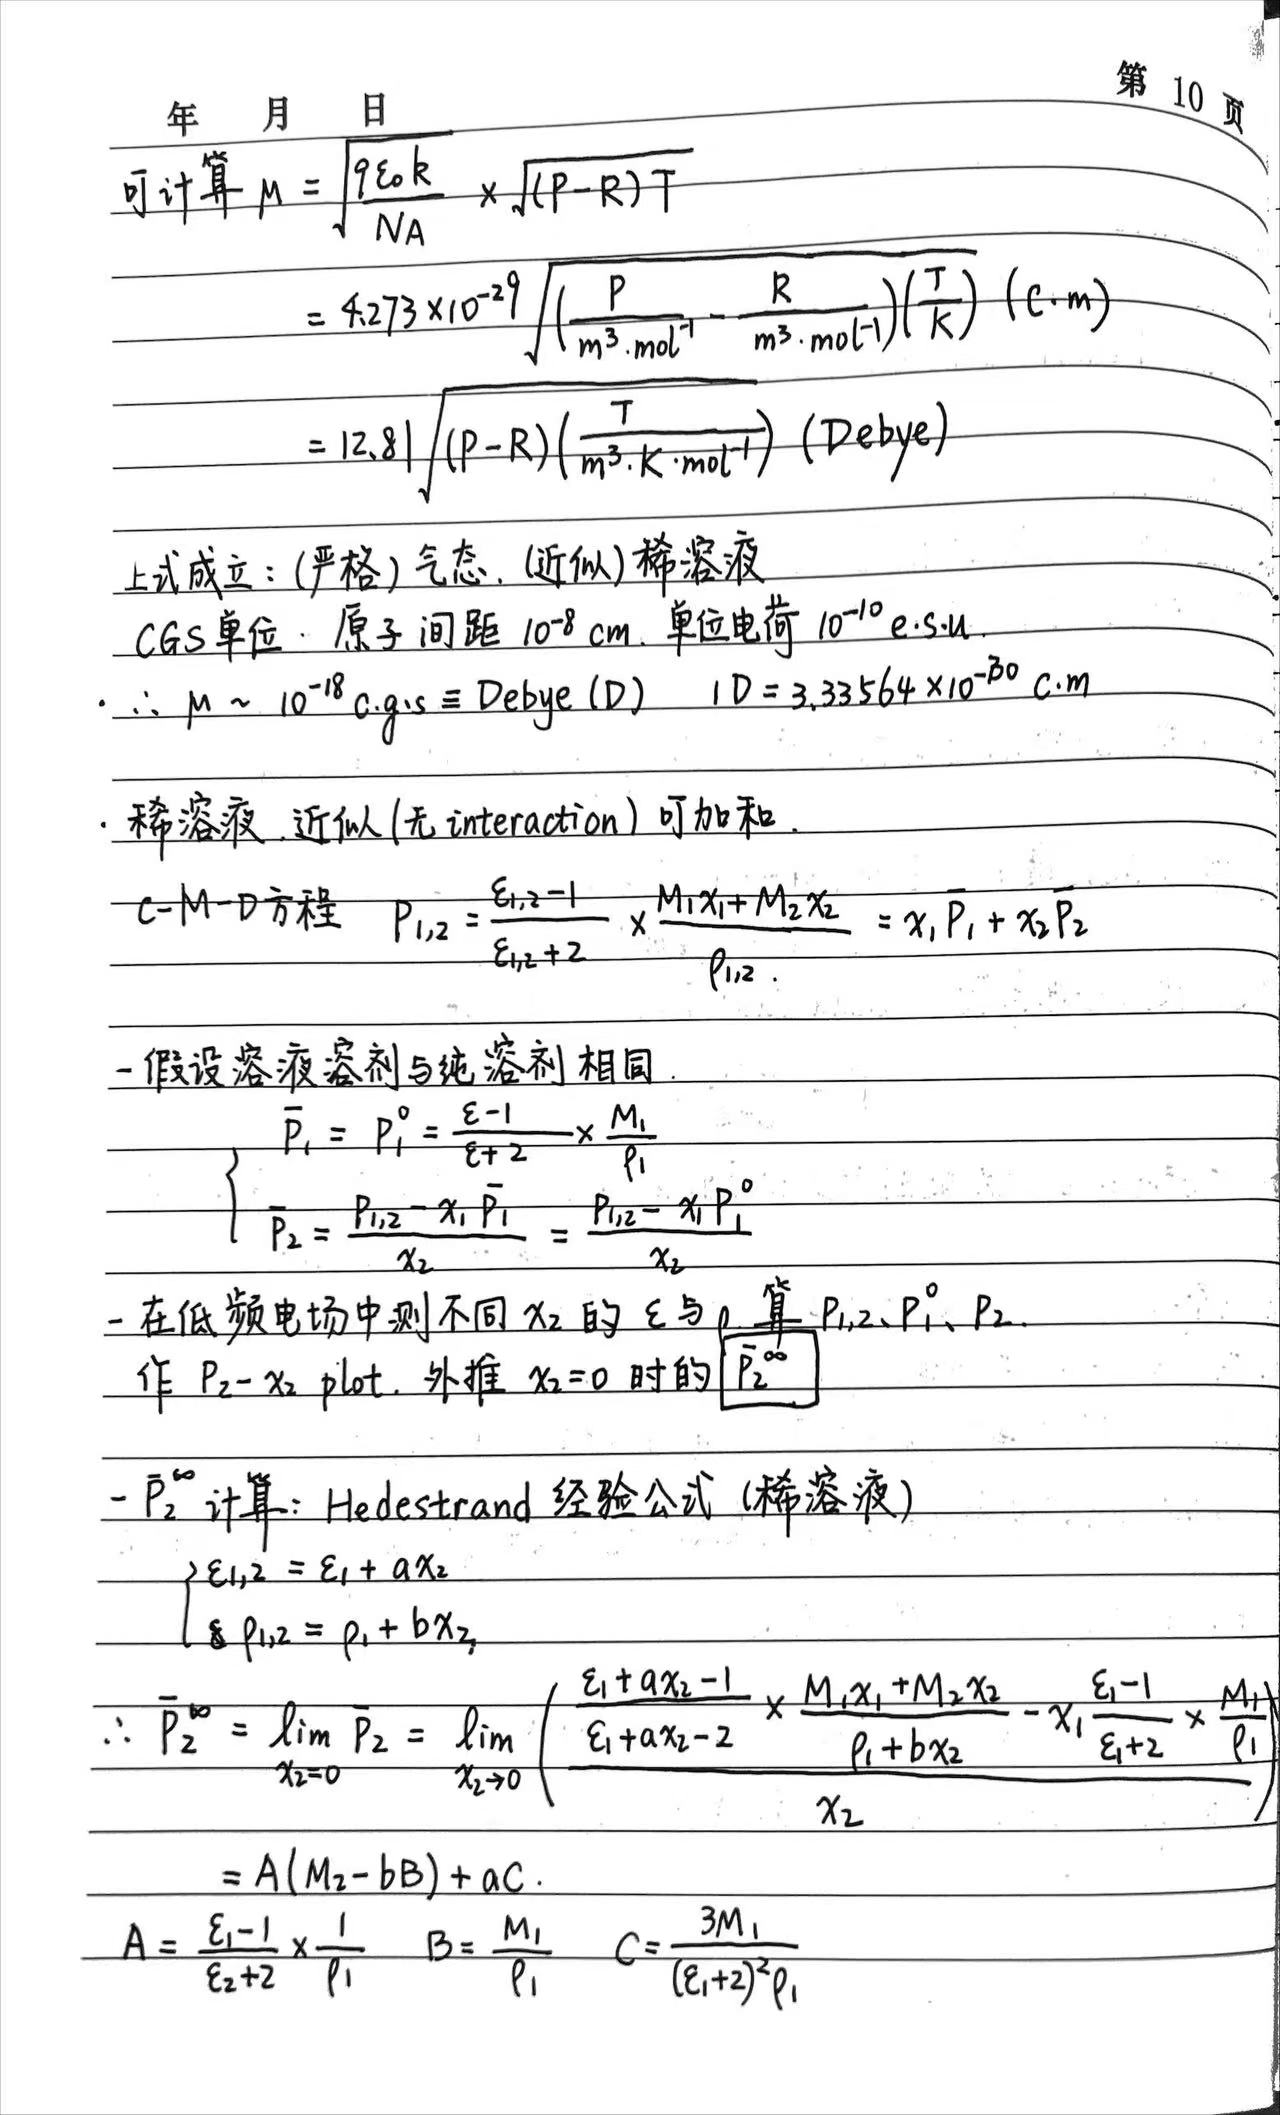 第 10 页
年 月 日
可计算 μ = √(9ε₀k/NA) × √((P-R)T)
= 4.273×10⁻²⁹ √((P/m³·mol⁻¹ - R/m³·mol⁻¹)(T/K)) (C·m)
= 12.81 √((P-R)(T/m³·K·mol⁻¹)) (Debye)
上式成立：(严格) 气态. (近似) 稀溶液
CGS单位. 原子间距 10⁻⁸ cm. 单位电荷 10⁻¹⁰ e.s.u.
· ∴ μ ~ 10⁻¹⁸ c.g.s ≡ Debye (D) 1D = 3.33564×10⁻³⁰ C.m
· 稀溶液. 近似(无 interaction) 可加和.
C-M-D方程 P₁,₂ = (ε₁,₂-1)/(ε₁,₂+2) × (M₁x₁+M₂x₂)/ρ₁,₂. = x₁P̄₁ + x₂P̄₂
- 假设溶液溶剂与纯溶剂相同.
P̄₁ = P₁⁰ = (ε-1)/(ε+2) × M₁/ρ₁
P̄₂ = (P₁,₂ - x₁P̄₁)/x₂ = (P₁,₂ - x₁P₁⁰)/x₂
- 在低频电场中测不同 x₂ 的 ε 与 ρ. 算 P₁,₂、P₁⁰、P₂.
作 P₂-x₂ plot. 外推 x₂=0 时的 P̄₂^∞
- P̄₂^∞ 计算: Hedestrand 经验公式 (稀溶液)
ε₁,₂ = ε₁ + ax₂
ρ₁,₂ = ρ₁ + bx₂
∴ P̄₂^∞ = lim x₂=0 P̄₂ = lim x₂→0 (((ε₁+ax₂-1)/(ε₁+ax₂-2) × (M₁x₁+M₂x₂)/(ρ₁+bx₂) - x₁ (ε₁-1)/(ε₁+2) × M₁/ρ₁)/x₂)
= A(M₂-bB) + aC.
A = (ε₁-1)/(ε₂+2) × 1/ρ₁ B = M₁/ρ₁ C = 3M₁/((ε₁+2)²ρ₁)